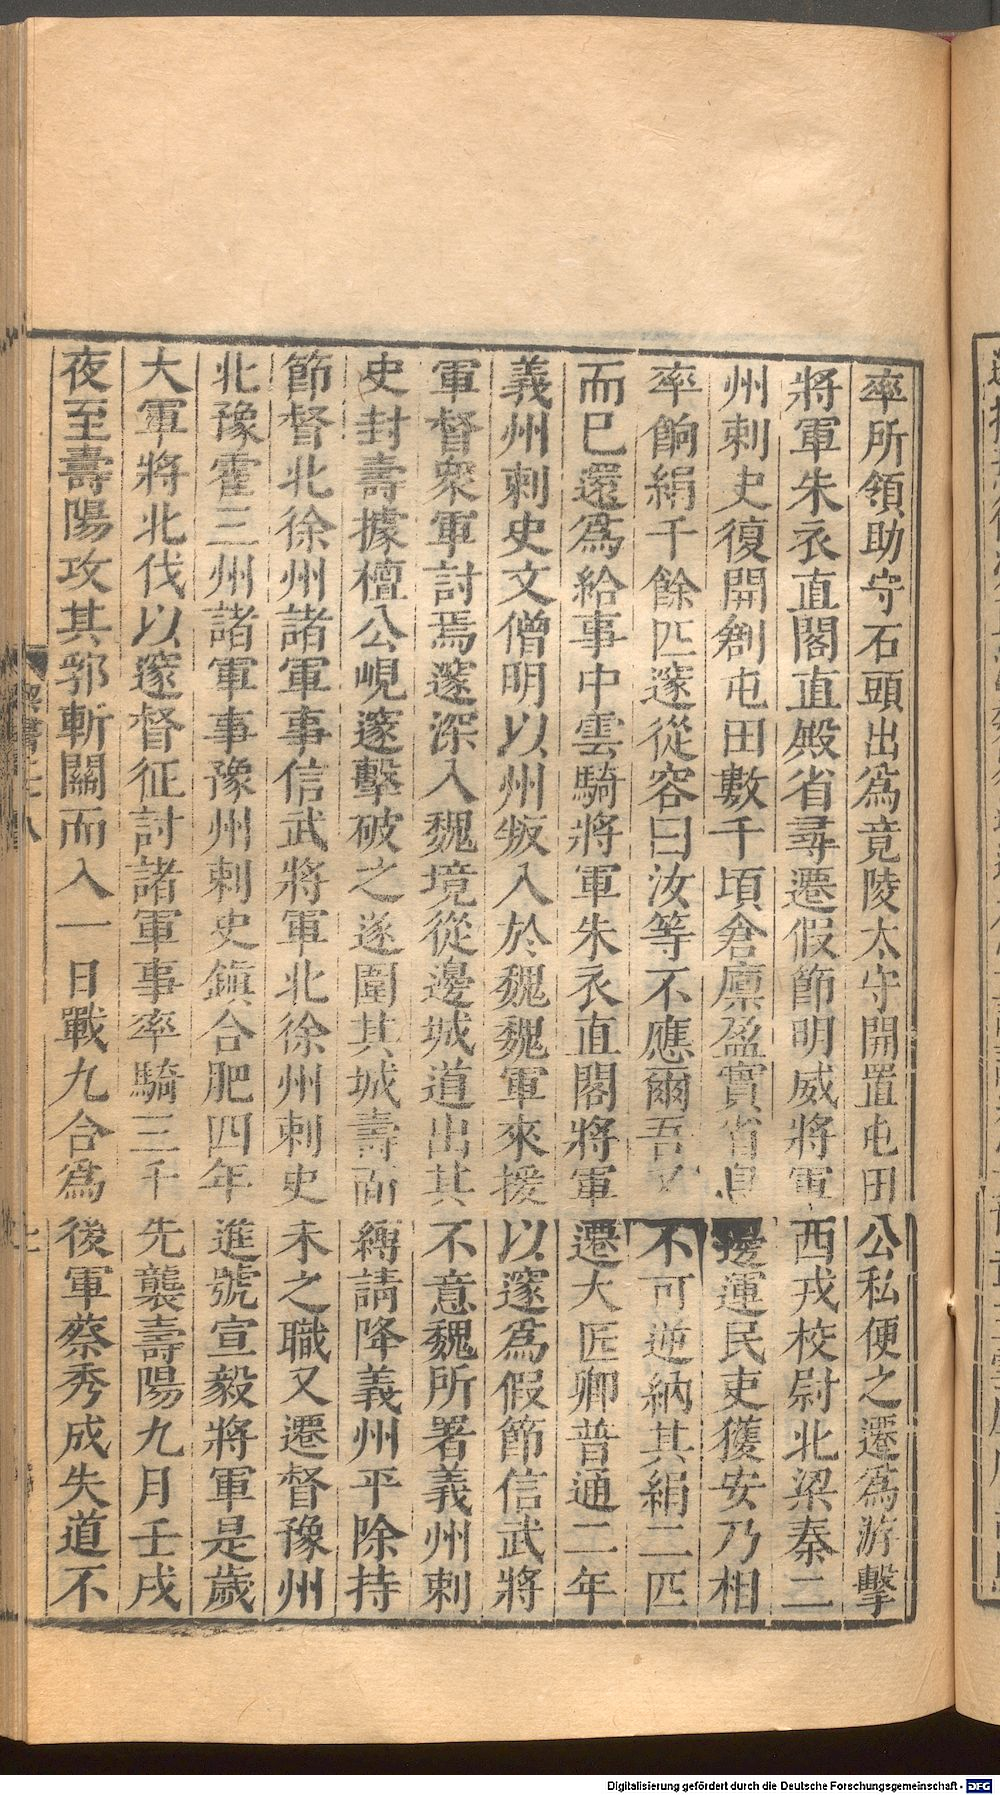 率所領助守石頭出爲竟陵太守開置屯田公私便之遷爲游擊
將軍朱衣直閣直殿省尋遷假節明威將軍西戎校尉北梁秦二
州刺史復開創屯田數千頃倉廩盈實省息邊運民吏獲安乃相
率餉絹千餘匹邃從容曰汝等不應爾吾又不可逆納其絹二匹
而巳還爲給事中雲騎將軍朱衣直閣將軍遷大匠卿普通二年
義州刺史文僧明以州叛入於魏魏軍來援以邃爲假節信武將
軍督衆軍討焉邃深入魏境從邊城道出其不意魏所署義州刺
史封壽據檀公峴邃擊破之遂圍其城壽面縛請降義州平除持
節督北徐州諸軍事信武將軍北徐州刺史未之職又遷督豫州
北豫霍三州諸軍事豫州刺史鎭合肥四年進號宣毅將軍是歲
大軍將北伐以邃督征討諸軍事率騎三千先襲壽陽九月壬戌
夜至壽陽攻其郛斬關而入一日戰九合爲後軍蔡秀成失道不
Digitalisierung gefördert durch die Deutsche Forschungsgemeinschaft - DFG